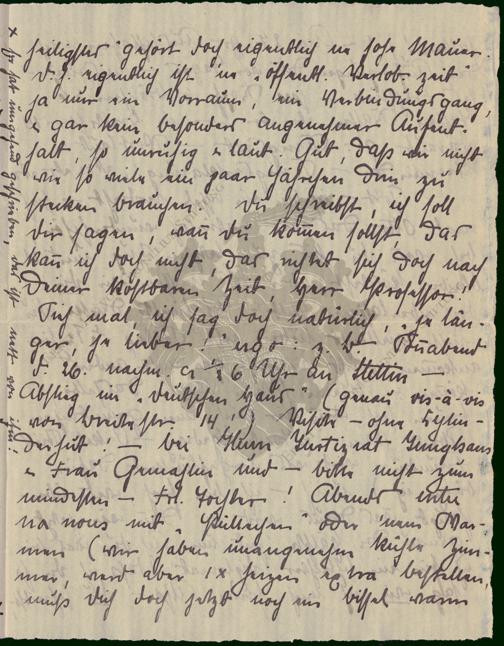 heiligstes" gehört doch eigentlich ne hohe Mauer.
D. h. eigentlich ist 'ne „öffentl. Verlob. zeit"
ja nur ein Vorraum, ein Verbindungsgang,
u gar kein besonders angenehmer Aufent-
halt, so unruhig u laut. Gut, daß wir nicht
wie so viele ein paar Jährchen drin zu
stecken brauchen. Du schreibst, ich soll
dir sagen, wañ du kom̃en sollst, das
kañ ich doch nicht, das richtet sich doch nach
Deiner kostbaren Zeit, Herr Professor.
Sieh mal, ich sag doch natürlich, „je län-
ger, je lieber!" ergo: z. B. Soñabend
d. 26. nachm. 6 Uhr an Stettin —
Abstieg im „Deutschen Haus" (genau vis-à-vis
von Breitestr. 14!) Visite — ohne Zylin-
derhut! — bei Herrn Justizrat Junghans
u Frau Gemahlin und — bitte nicht zum
mindesten — Frl. Tochter! Abends inter
na nous mit „Püllechen" oder 'nem War-
men (wir haben unangenehm kühle Zim-
mer, werd aber 1x heizen extra bestellen,
muß dich doch jetzt noch ein bissel warm
x Er hat umgehend geschrieben, das ist nett von ihm!